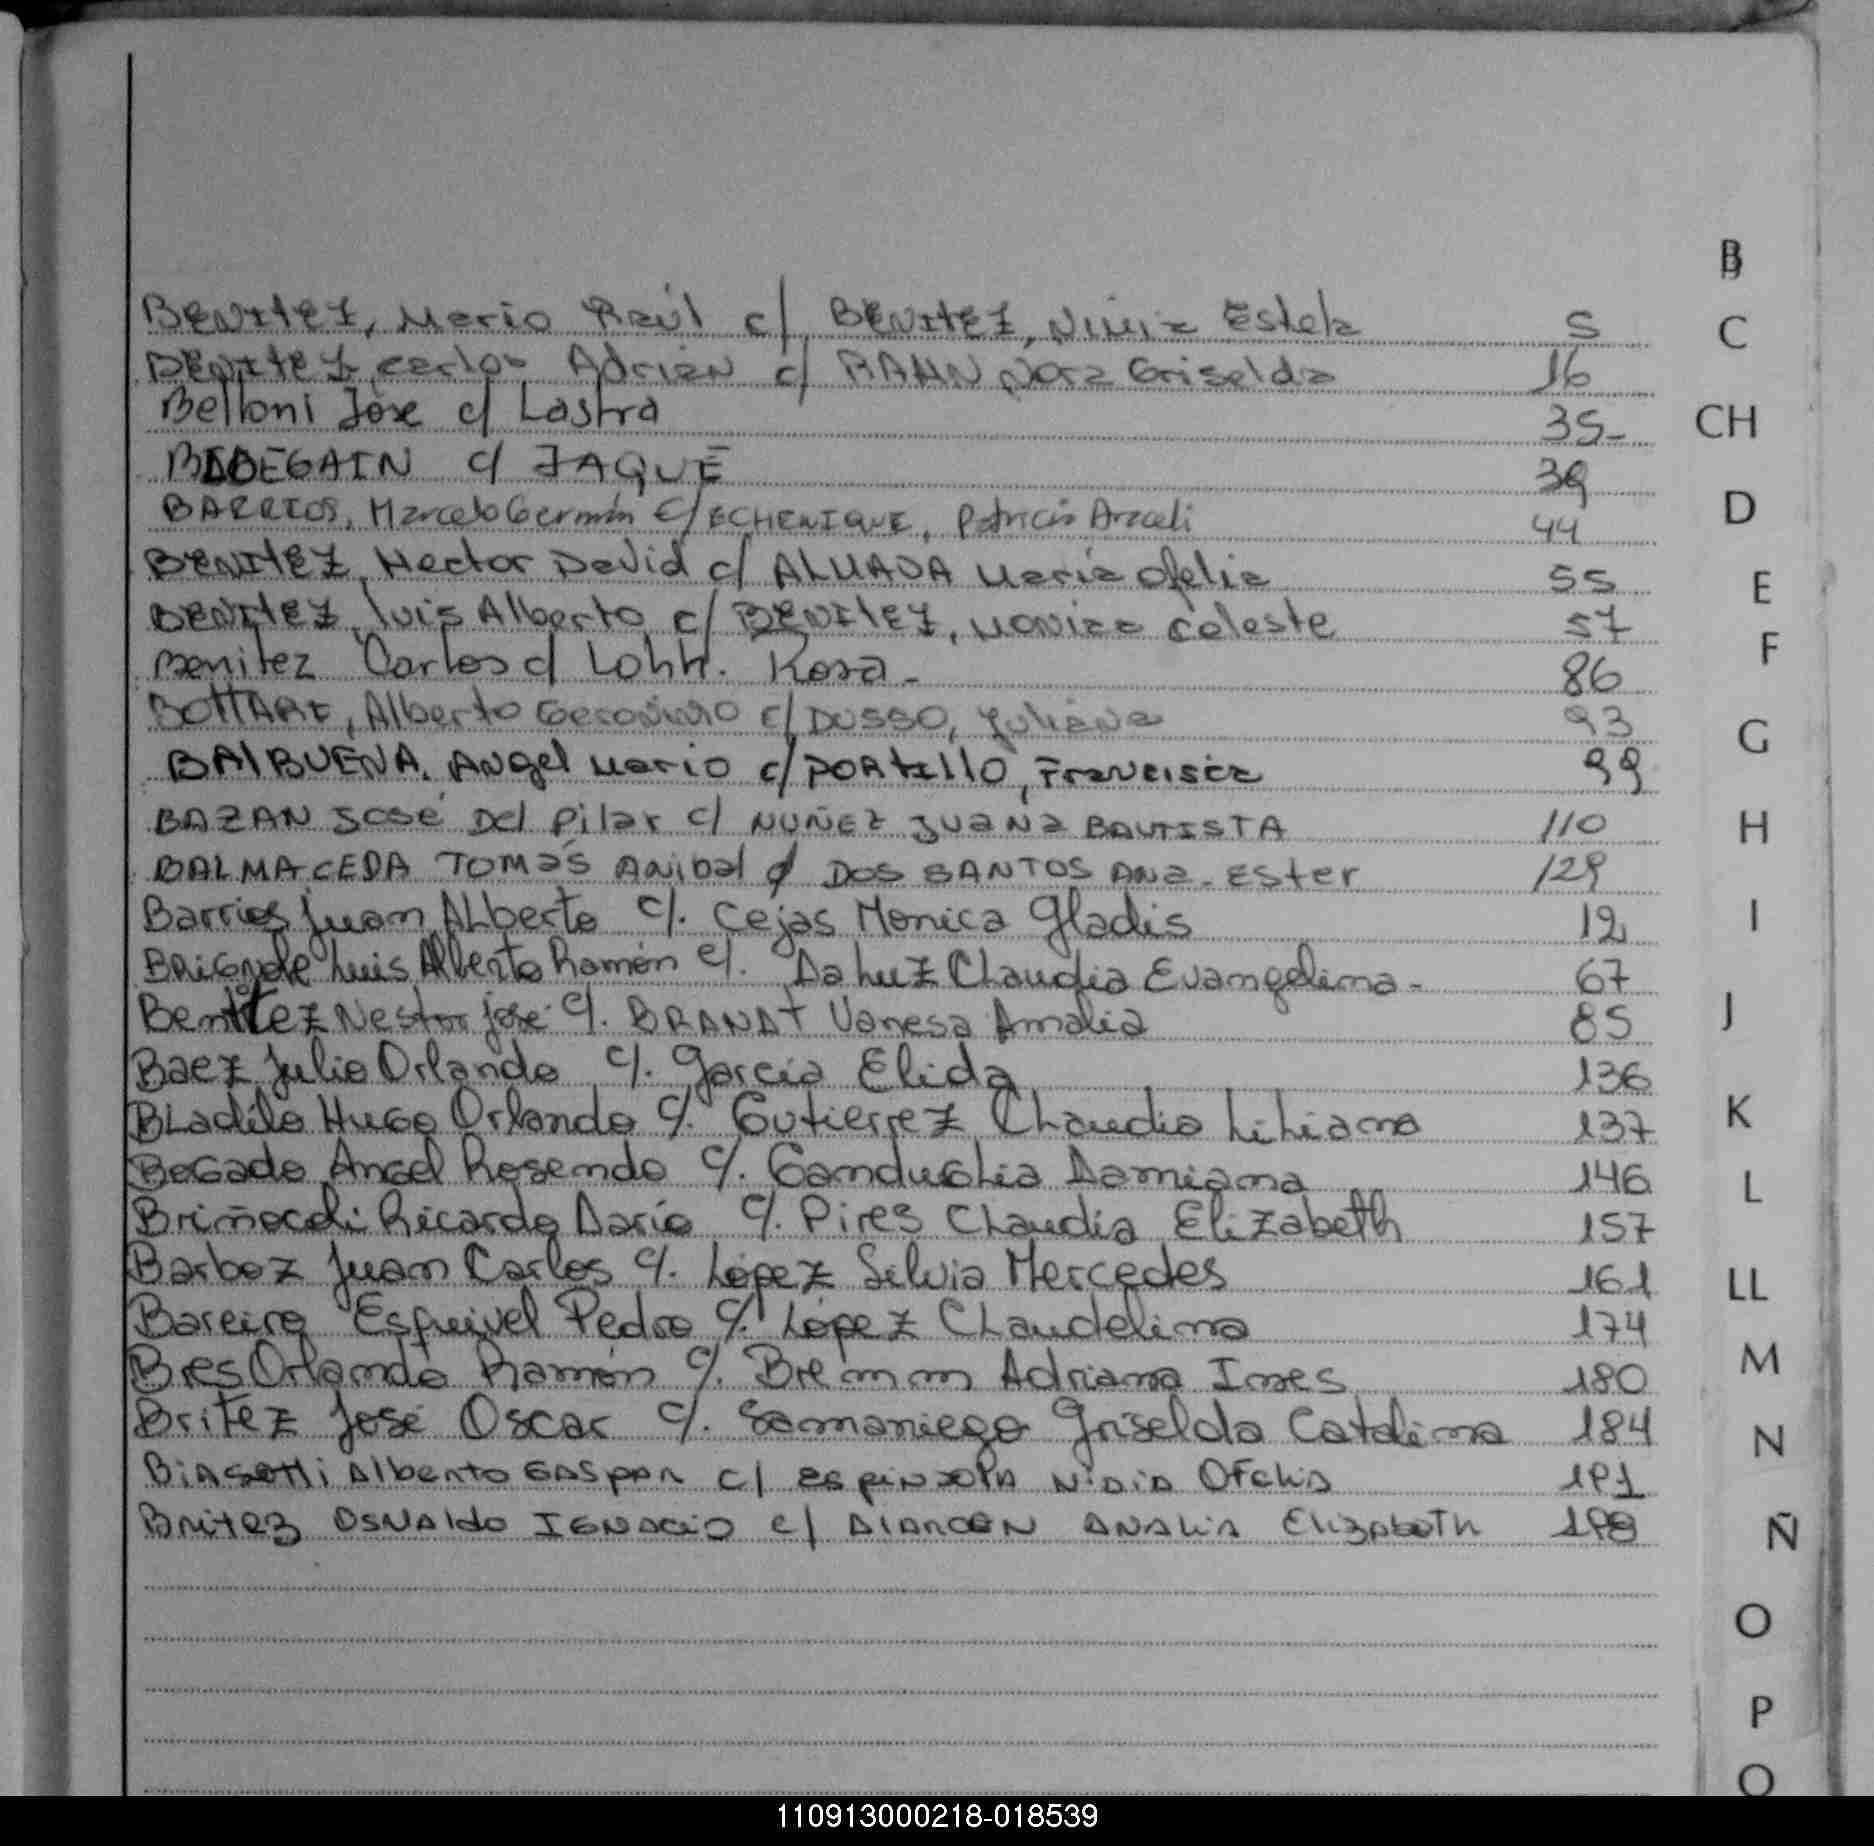 B
BENITEZ, Mario Raúl c/ BENITEZ, Nimia Estela 5
C
BENITEZ Carlos Adrián c/ RAHN Nora Griselda 16
Belloni Jose c/ Lastra 35-
CH
BIDEGAIN c/ JAQUE 39
BARRIOS, Marcelo Germán c/ ECHENIQUE, Patricia Araceli 44
D
BENITEZ, Hector David c/ ALMADA Maria Ofelia 55
E
BENITEZ, Luis Alberto c/ BENITEZ, Monica Celeste 57
F
Benitez Carlos c/ Lohh. Rosa - 86
BOTTARE, Alberto Geronimo c/ DUSSO, Juliana 93
G
BALBUENA, Angel Mario c/ PORTILLO, Francisca 99
BAZAN JOSÉ Del Pilar c/ NUÑEZ JUANA BAUTISTA 110
H
BALMACEDA TOMÁS ANIBAL c/ DOS SANTOS ANA. ESTER 129
Barrios Juan Alberto c/. Cejas Monica Gladis 12
I
Luis Alberto Ramón c/. Da Luz Claudia Evangelina - 67
Benitez Nestor José c/. BRANDT Vanesa Amalia 85
J
Baez Julio Orlando c/. Garcia Elida 136
BLadilo Hugo Orlando c/. Gutierrez Claudia Liliana 137
K
Bogado Angel Rosendo c/. Ganduglia Damiana 146
L
Briñocoli Ricardo Dario c/. Pires Claudia Elizabeth 157
Barboz Juan Carlos c/. López Silvia Mercedes 161
LL
Bareiro Esquivel Pedro c/. López Claudelina 174
M
Bres Orlando Ramón c/. Bremm Adriana Ines 180
Britez José Oscar c/. Samaniego Griselda Catalina 184
N
BiASotti Alberto GASpar c/ espindola Nidia Ofelia 191
Britez OSVALdo IGNACIO c/ ALARCON ANALIA Elizabeth 198
Ñ
O
P
Q
110913000218-018539